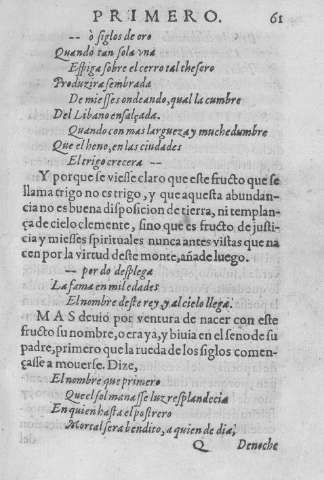 PRIMERO. 61
-- ò siglos de oro
Quando tan sola vna
Espiga sobre el cerro tal thesoro
Produzira sembrada
De miesses ondeando, qual la cumbre
Del Libano ensalçada.
Quando con mas largueza y muchedumbre
Que el heno, en las ciudades
El trigo crecera --
Y porque se viesse claro que este fructo que se
llama trigo no es trigo, y que aquesta abundan-
cia no es buena disposicion de tierra, ni templan-
ça de cielo clemente, sino que es fructo de justi-
cia y miesses spirituales nunca antes vistas que na
cen por la virtud deste monte, añade luego.
-- por do desplega
La fama en mil edades
El nombre deste rey, y al cielo llega.
MAS deuio por ventura de nacer con este
fructo su nombre, o era ya, y biuia en el seno de su
padre, primero que la rueda de los siglos comen-
çasse a mouerse. Dize,
El nombre que primero
Que el sol manasse luz resplandecia
En quien hasta el postrero
Mortal sera bendito, a quien de dia,
Q Denoche